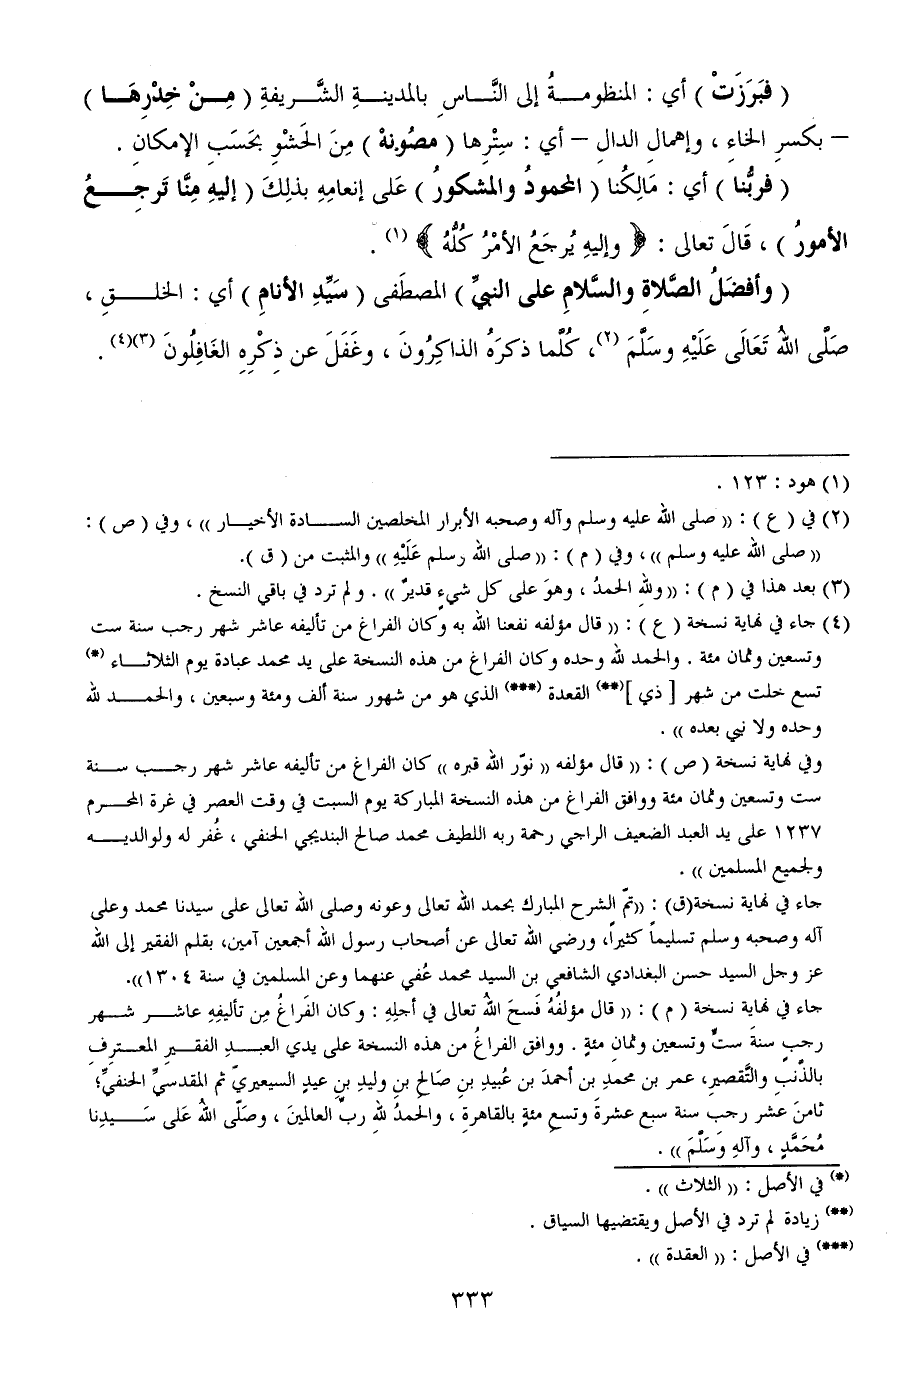 ( فَبَرَزَتْ ) أي : المنظومةُ إلى النَّاسِ بالمدينةِ الشَّريفةِ ( مِنْ خِدْرِهَا )
– بكسرِ الخاءِ ، وإهمالِ الدال – أي : سِتْرِها ( مصُونة ) مِنَ الحَشْوِ بحَسَبِ الإمكانِ .
( فربُّنا ) أي : مَالِكُنا ( المحمودُ والمشكورُ ) عَلى إنعامِهِ بذلِكَ ( إليهِ مِنَّا تَرجِعُ
الأمورُ ) ، قَالَ تعالى : ﴿ وإليهِ يُرجَعُ الأمْرُ كُلُّهُ ﴾ (١) .
( وأفضَلُ الصَّلاةِ والسَّلامِ على النبيِّ ) المصطَفى ( سَيِّدِ الأنامِ ) أي : الخلقِ ،
صَلَّى اللهُ تَعَالَى عَلَيْهِ وسَلَّمَ (٢)، كُلَّما ذكرَهُ الذاكِرُونَ ، وغَفَلَ عن ذِكْرِهِ الغَافِلُونَ (٣)(٤) .
(١) هود : ١٢٣ .
(٢) في ( ع ) : (( صلى الله عليه وسلم وآله وصحبه الأبرار المخلصين السادة الأخيار )) ، وفي ( ص ) :
(( صلى الله عليه وسلم ))، وفي ( م ) : (( صلى الله رسلم عَلَيْهِ )) والمثبت من ( ق ).
(٣) بعد هذا في ( م ) : (( وللهِ الحمدُ ، وهوَ على كل شيءٍ قديرٌ )) . ولم ترد في باقي النسخ .
(٤) جاء في نهاية نسخة ( ع ) : (( قال مؤلفه نفعنا الله به وكان الفراغ من تأليفه عاشر شهر رجب سنة ست
وتسعين وثمان مئة . والحمد لله وحده وكان الفراغ من هذه النسخة على يد محمد عبادة يوم الثلاثاء (*)
تسع خلت من شهر [ ذي ](**) القعدة (***) الذي هو من شهور سنة ألف ومئة وسبعين ، والحمد لله
وحده ولا نبي بعده )) .
وفي نهاية نسخة ( ص ) : (( قال مؤلفه (( نوّر الله قبره )) كان الفراغ من تأليفه عاشر شهر رجب سنة
ست وتسعين وثمان مئة ووافق الفراغ من هذه النسخة المباركة يوم السبت في وقت العصر في غرة المحرم
١٢٣٧ على يد العبد الضعيف الراجي رحمة ربه اللطيف محمد صالح البنديجي الحنفي ، غُفر له ولوالديه
ولجميع المسلمين )) .
جاء في نهاية نسخة(ق) : ((تمّ الشرح المبارك بحمد الله تعالى وعونه وصلى الله تعالى على سيدنا محمد وعلى
آله وصحبه وسلم تسليماً كثيراً، ورضي الله تعالى عن أصحاب رسول الله أجمعين آمين، بقلم الفقير إلى الله
عز وجل السيد حسن البغدادي الشافعي بن السيد محمد عُفي عنهما وعن المسلمين في سنة ١٣٠٤)).
جاء في نهاية نسخة ( م ) : (( قال مؤلفُهُ فَسحَ اللهُ تعالى في أجلِهِ : وكان الفَراغُ مِن تأليفِهِ عاشر شهر
رجبٍ سنةَ ستٍّ وتسعين وثمانِ مئةٍ . ووافق الفراغُ من هذه النسخة على يدي العبدِ الفقيرِ المعترفِ
بالذَّنبِ والتَّقصيرِ، عمر بن محمدِ بن أحمدَ بن عُبيدِ بنِ صَالحِ بنِ وليدِ بنِ عيدٍ السيعيريّ ثم المقدسيِّ الحنفيِّ؛
ثامنَ عشر رجب سنة سبع عشرةَ وتسعِ مئةٍ بالقاهرةِ ، والحمدُ للهِ ربِّ العالمينَ ، وصلّى اللهُ عَلى سَيدِنا
مُحَمَّدٍ ، وآلهِ وَسَلَّمَ )) .
(*) في الأصل : (( الثلاث )) .
(**) زيادة لم ترد في الأصل ويقتضيها السياق .
(***) في الأصل : (( العقدة )) .
٣٣٣